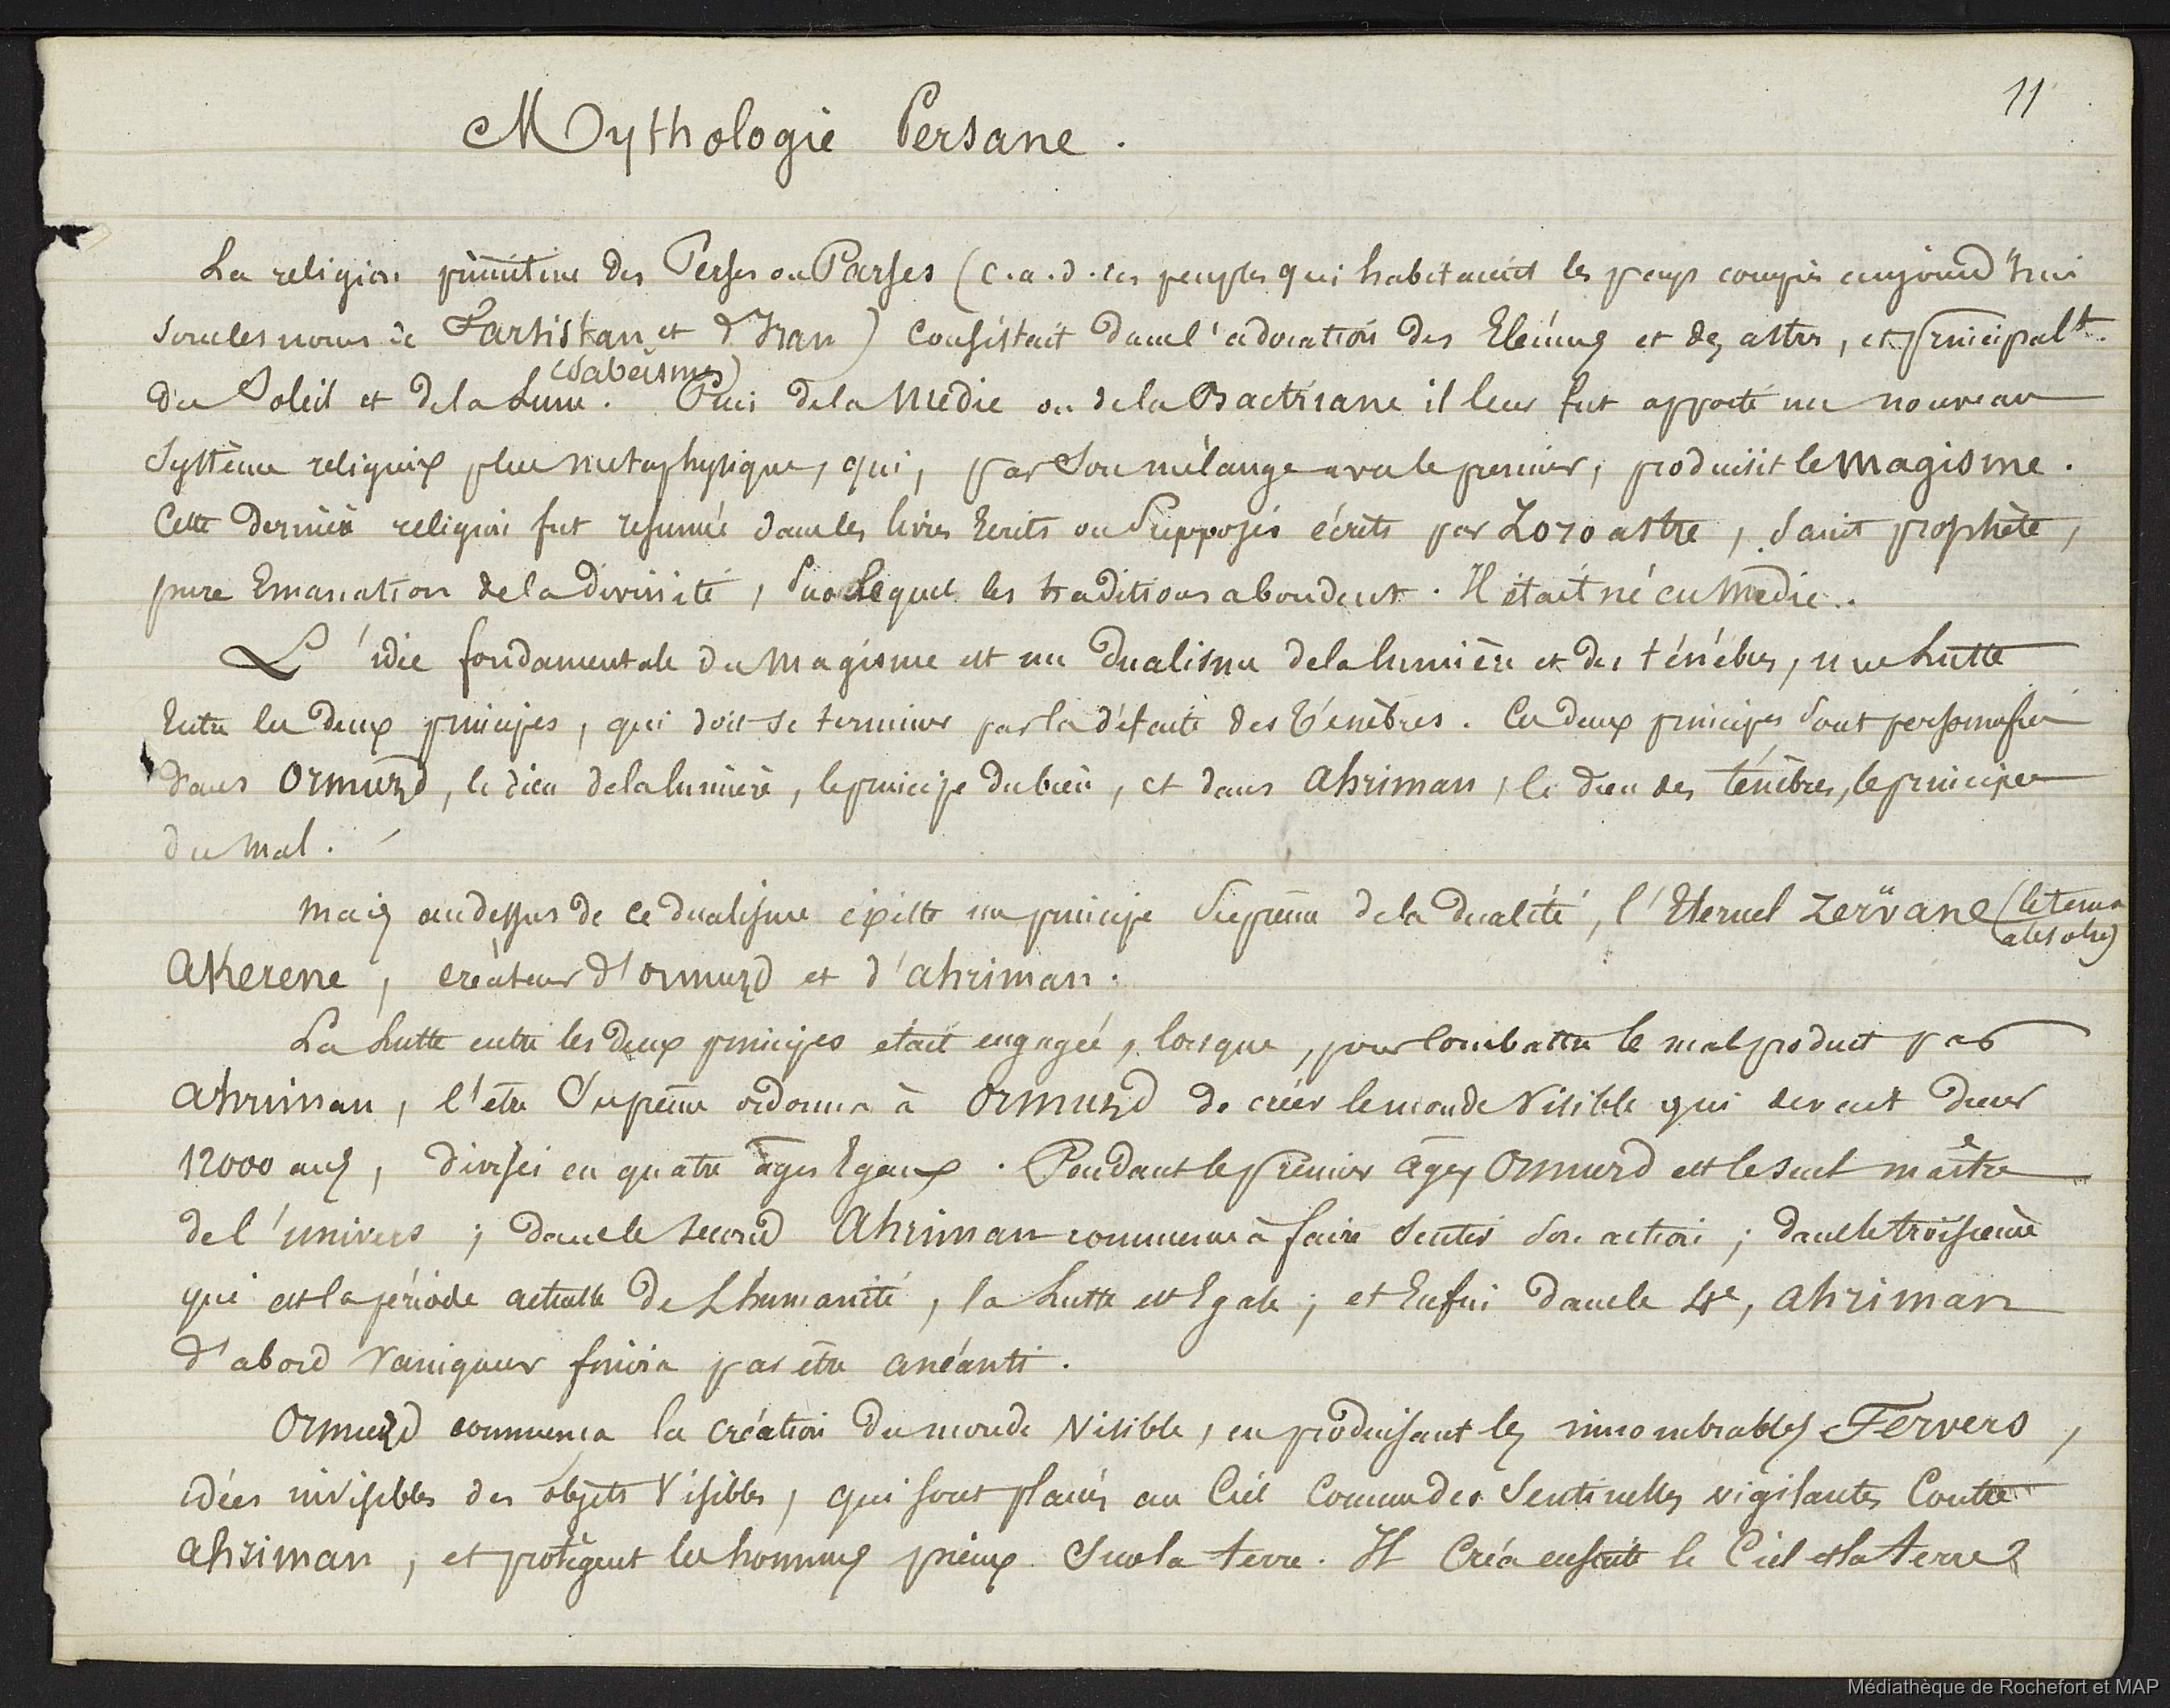 11
Mythologie Persane.
La religion primitive des Perses ou Parses (c.a.d. les peuples qui habitaient les pays compris aujourd'hui
sous les noms de Farsistan et d'Iran) consistait dans l'adoration des Eléments et des astres, et principalt.
(Sabéisme)
du Soleil et de la Lune. Puis de la Médie ou de la Bactriane il leur fut apporté un nouveau
système religieux plus métaphysique, qui, par son mélange avec le premier, produisit le Magisme.
Cette dernière religion fut résumée dans les livres Ecrits ou Supposés écrits par Zoroastre, Saint prophète,
pure Emanation de la divinité, sur lequel les traditions abondent. Il était né en Médie.
L'idée fondamentale du Magisme est un dualisme de la lumière et des ténèbres, une Lutte
Entre les deux principes, qui doit se terminer par la défaite des Ténèbres. Ces deux principes sont personnifiés
dans Ormuzd, le dieu de la lumière, le principe du bien, et dans Ahriman, le dieu des ténèbres, le principe
du Mal.
Mais au dessus de ce dualisme existe un principe Suprême de la dualité, l'Eternel Zervane (le temps
absolu)
Akerene, créateur d'Ormuzd et d'Ahriman.
La Lutte entre les deux principes était engagée, lorsque, pour combattre le mal produit par
Ahriman, l'être Suprême ordonna à Ormuzd de créer le monde Visible qui devait durer
12000 ans, divisés en quatre âges Egaux. Pendant le premier âge, Ormuzd est le seul maître
de l'univers; dans le second Ahriman commence à faire sentir son action; dans le troisième
qui est la période actuelle de L'humanité, la Lutte est Egale; et Enfin dans le 4e, Ahriman
d'abord vainqueur finira par être anéanti.
Ormuzd commença la création du monde Visible, en produisant les innombrables Fervers,
idées invisibles des objets Visibles, qui sont placés au Ciel Comme des Sentinelles vigilantes Contre
Ahriman, et protègent les hommes pieux sur la terre. Il Créa ensuite le Ciel et la terre
Médiathèque de Rochefort et MAP